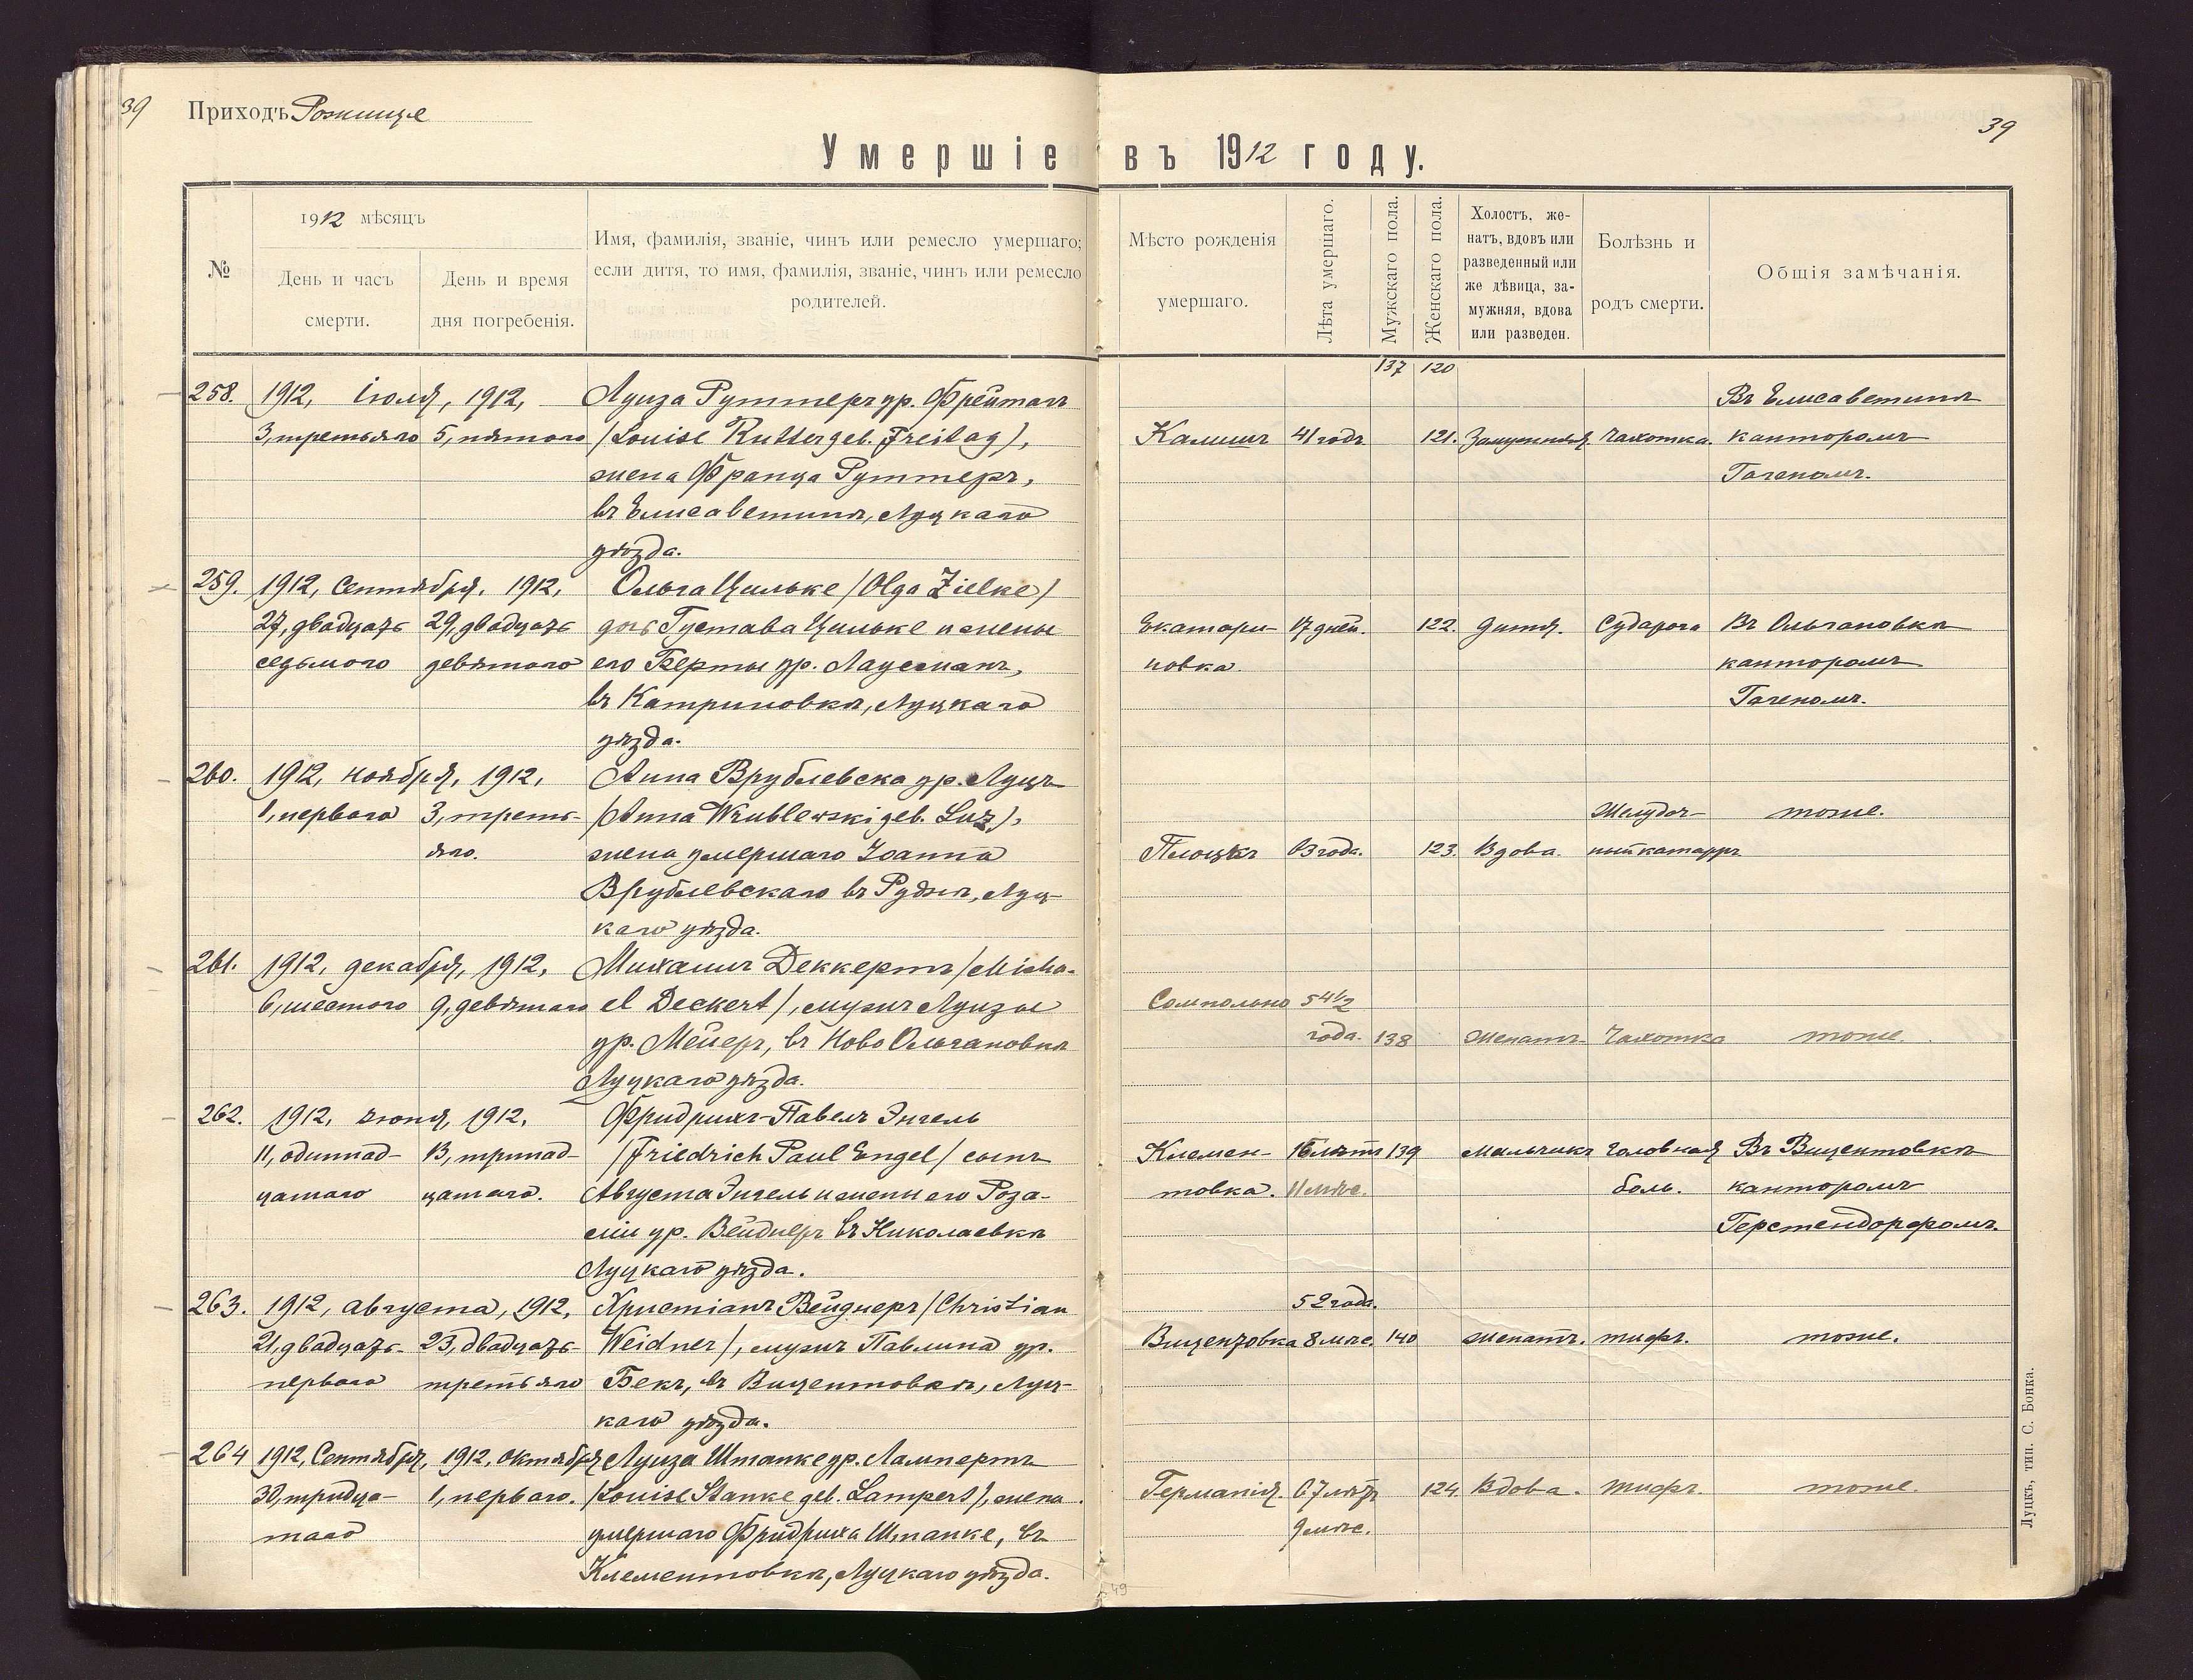 39
Приходъ Рожище
39
Умершіе въ 1912 году.
№
1912 мѣсяцъ
День и часъ
смерти.
День и время
дня погребенія.
Имя, фамилія, званіе, чинъ или ремесло умершаго;
если дитя, то имя, фамилія, званіе, чинъ или ремесло
родителей.
Мѣсто рожденія
умершаго.
Лѣта умершаго.
Мужскаго пола.
Женскаго пола.
Холостъ, же-
натъ, вдовъ или
разведенный или
же дѣвица, за-
мужняя, вдова
или разведен.
Болѣзнь и
родъ смерти.
Общія замѣчанія.
137 120
258. 1912, Іюля, 1912, Луиза Руттеръ ур. Фрейтагъ Въ Елисаветинѣ
3, третьяго 5, пятого /Louise Rutter geb. Freitag/, Калишъ 41 годъ 121. Замужняя. Чахотка. канторомъ
жена Франца Руттеръ, Гагеномъ.
въ Елисаветинѣ, Луцкаго
уѣзда.
259. 1912, Сентября, 1912, Ольга Цильке /Olga Zielke/
27, двадцать 29, двадцать дочь Густава Цильке и жены Екатари- 17 дней. 122. дитя. Судорога Въ Ольгановкѣ
седьмого девятого его Берты ур. Лаусманъ, новка. канторомъ
въ Катриновкѣ, Луцкаго Гагеномъ.
уѣзда.
260. 1912, ноября, 1912, Анна Врублевска ур. Луцъ
1, первого 3, треть- /Anna Wrublewski geb. Luz/, Желудоч- тоже.
яго. жена умершаго Іоанна Плоцкъ 63 года. 123. Вдова. ный катарръ.
Врублевскаго въ Руднѣ, Луц-
каго уѣзда.
261. 1912, декабря, 1912, Михаилъ Деккертъ /Micha-
6, шестого 9, девятаго el Deckert/, мужъ Луизы Сомпольно 54 1/2
ур. Мейеръ, въ Ново Ольгановкѣ года. 138 Женатъ. Чахотка тоже.
Луцкаго уѣзда.
262. 1912, іюня, 1912, Фридрихъ-Павелъ Энгель
11, одиннад- 13, тринад- /Friedrich Paul Engel/ сынъ Клемен- 16 лѣтъ 139 Мальчикъ головная Въ Вицентовкѣ
цатаго цатаго. Августа Энгель и жены его Роза- товка. 11 мѣс. боль. канторомъ
ліи ур. Вейднеръ въ Николаевкѣ Герстендорфомъ.
Луцкаго уѣзда.
263. 1912, августа, 1912, Христіанъ Вейднеръ /Christian 52 года.
21, двадцать- 23, двадцать- Weidner/, мужъ Павлина ур. Виценτовка 8 мѣс. 140 женатъ. тифъ. тоже.
первого третьяго Бекъ, въ Вицентовкѣ, Луц-
каго уѣзда.
264 1912, Сентября, 1912, октября Луиза Штанке ур. Лампертъ
30, тридца- 1, первого. /Louise Stanke geb. Lampert/, жена Германія. 67 лѣтъ 124. Вдова. тифъ. тоже.
таго умершаго Фридриха Штанке, въ 9 мѣс.
Клементовкѣ, Луцкаго уѣзда.
49
Луцкъ, тип. С. Бонка.